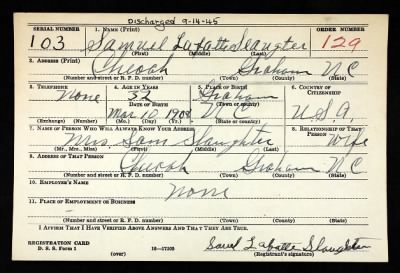 Discharged 9-14-45
SERIAL NUMBER 1. NAME (Print) ORDER NUMBER
103 Samuel LaFatte Slaughter 129
(First) (Middle) (Last)
2. ADDRESS (Print)
Cheoah Graham N C
(Number and street or R. F. D. number) (Town) (County) (State)
3. TELEPHONE 4. AGE IN YEARS 5. PLACE OF BIRTH 6. COUNTRY OF CITIZENSHIP
None 32 Graham
DATE OF BIRTH
Mar 10 1908 N. C. U.S.A.
(Exchange) (Number) (Mo.) (Day) (Yr.) (Town) (County)
7. NAME OF PERSON WHO WILL ALWAYS KNOW YOUR ADDRESS 8. RELATIONSHIP OF THAT PERSON
Mrs. Sam Slaughter Wife
(Mr., Mrs., Miss) (First) (Middle) (Last)
9. ADDRESS OF THAT PERSON
Cheoah Graham N C
(Number and street or R. F. D. number) (Town) (County) (State)
10. EMPLOYER'S NAME
None
11. PLACE OF EMPLOYMENT OR BUSINESS
(Number and street or R. F. D. number) (Town) (County) (State)
I AFFIRM THAT I HAVE VERIFIED ABOVE ANSWERS AND THAT THEY ARE TRUE.
REGISTRATION CARD
D. S. S. Form 1 16—17105 Slaughter
(over) (Registrant's signature)